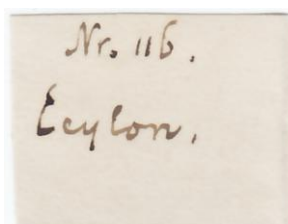 Nr. 116.
Ceylon.